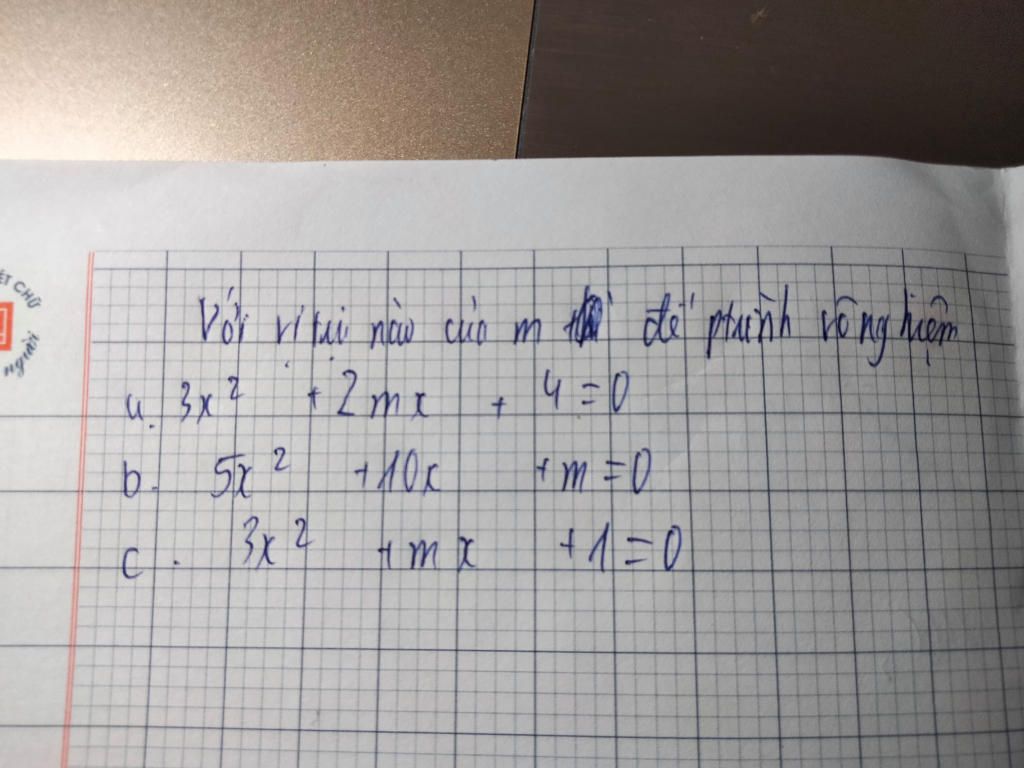 ẾT CHỮ
người
Với vị trị nào của m để phình vô nghiệm
a. 3x² + 2mx + 4 = 0
b. 5x² + 10x + m = 0
c. 3x² + mx + 1 = 0